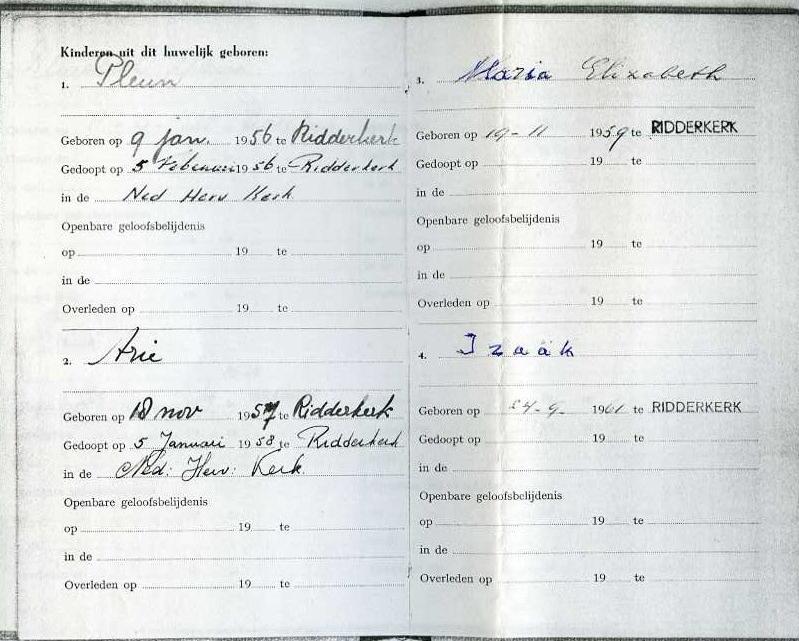 Kinderen uit dit huwelijk geboren:
1. Pleun
Geboren op 9 jan. 1956 te Ridderkerk
Gedoopt op 5 Februari 1956 te Ridderkerk
in de Ned Herv Kerk
Openbare geloofsbelijdenis
op 19 te
in de
Overleden op 19 te
2. Arie
Geboren op 18 nov 1957 te Ridderkerk
Gedoopt op 5 Januari 1958 te Ridderkerk
in de Ned: Herv: Kerk.
Openbare geloofsbelijdenis
op 19 te
in de
Overleden op 19 te
3. Maria Elizabeth
Geboren op 19-11 1959 te RIDDERKERK
Gedoopt op 19 te
in de
Openbare geloofsbelijdenis
op 19 te
in de
Overleden op 19 te
4. Izaäk
Geboren op 24-9- 1961 te RIDDERKERK
Gedoopt op 19 te
in de
Openbare geloofsbelijdenis
op 19 te
in de
Overleden op 19 te